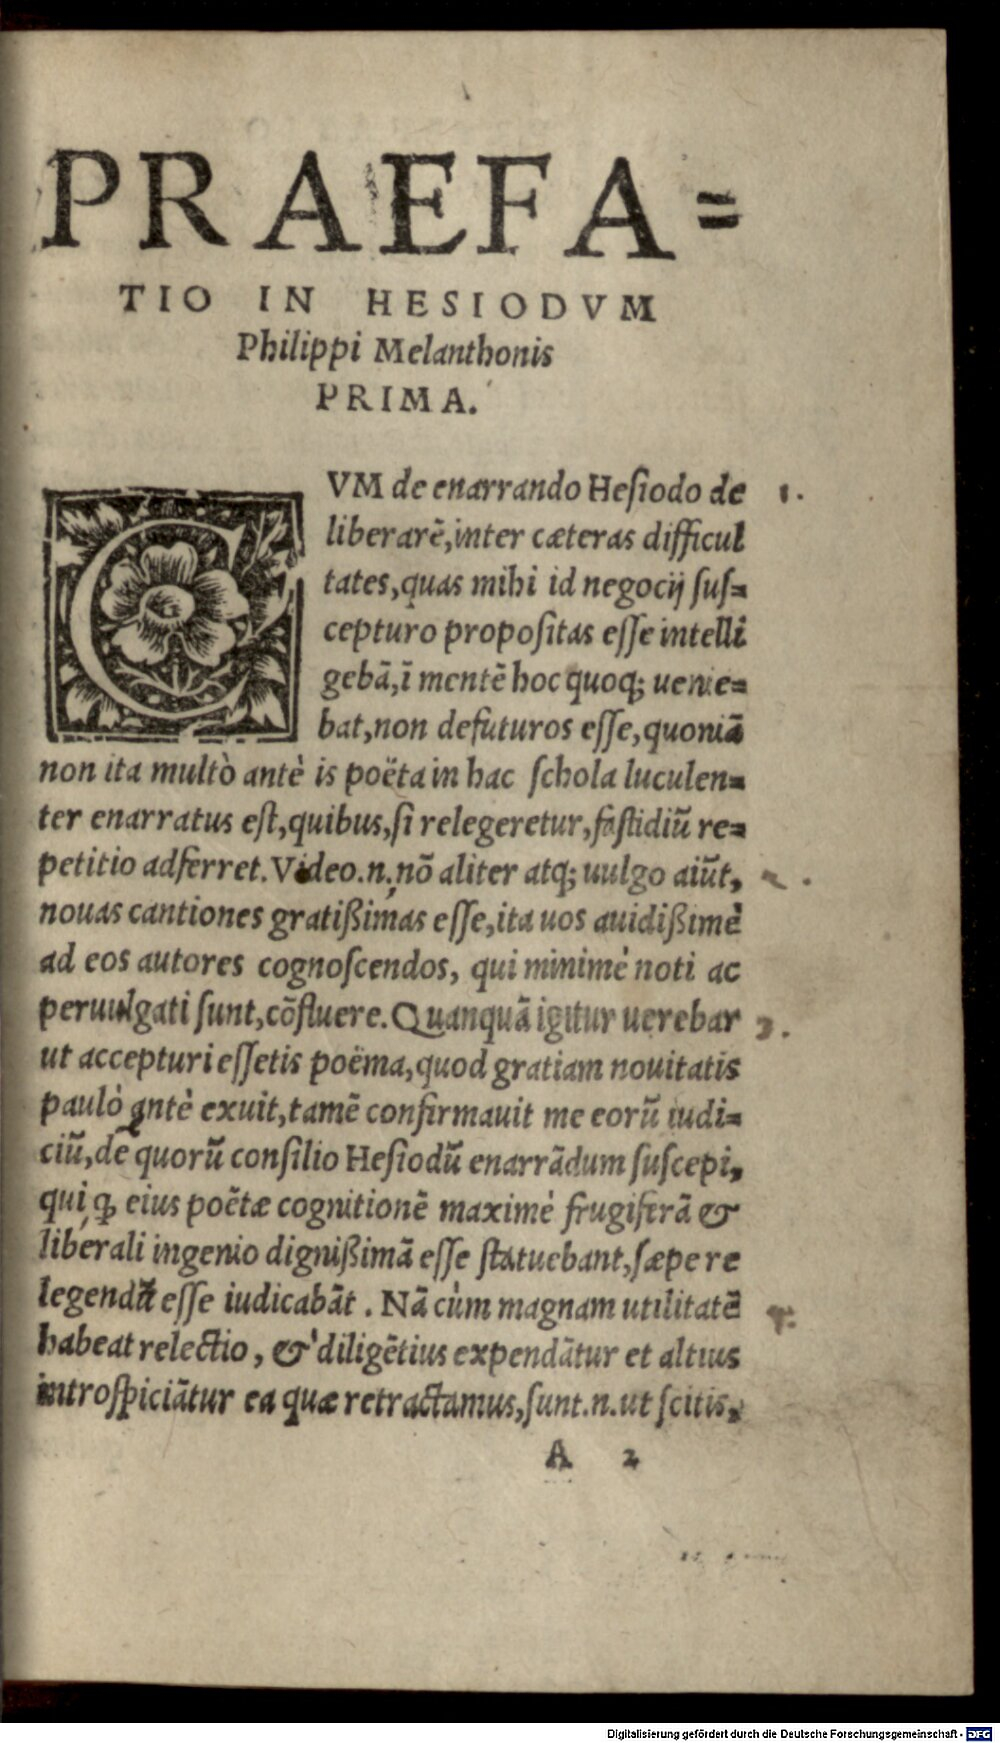 PRAEFA=
TIO IN HESIODVM
Philippi Melanthonis
PRIMA.
CVM de enarrando Hesiodo de 1.
liberarē, inter cæteras difficul
tates, quas mihi id negocij sus=
cepturo propositas esse intelli
gebā, ī mentē hoc quoq; uenie=
bat, non defuturos esse, quoniā
non ita multò antè is poëta in hac schola luculen=
ter enarratus est, quibus, si relegeretur, fastidiū re=
petitio adferret. Video.n. nō aliter atq; uulgo aiūt, 2.
nouas cantiones gratißimas esse, ita uos auidißimè
ad eos autores cognoscendos, qui minimè noti ac
peruulgati sunt, cōfluere. Quanquā igitur uerebar 3.
ut accepturi essetis poëma, quod gratiam nouitatis
paulò antè exuit, tamē confirmauit me eorū iudi=
ciū, de quorū consilio Hesiodū enarrādum suscepi,
qui, ꝙ eius poëtæ cognitionē maximè frugiferā &
liberali ingenio dignißimā esse statuebant, sæpe re
legendū esse iudicabāt. Nā cùm magnam utilitatē 4.
habeat relectio, & diligētius expendātur et altius
introspiciātur ea quæ retractamus, sunt.n. ut scitis,
A 2
Digitalisierung gefördert durch die Deutsche Forschungsgemeinschaft - DFG